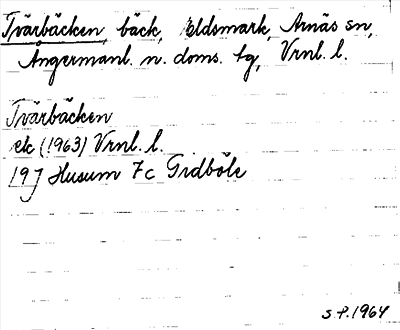 Tvärbäcken, bäck, Eldsmark, Arnäs sn,
Ångermanl. n. doms. tg, Vrnl. l.
Tvärbäcken
ek (1963) Vrnl. l.
19J Husum 7c Gidböle
S.P. 1964